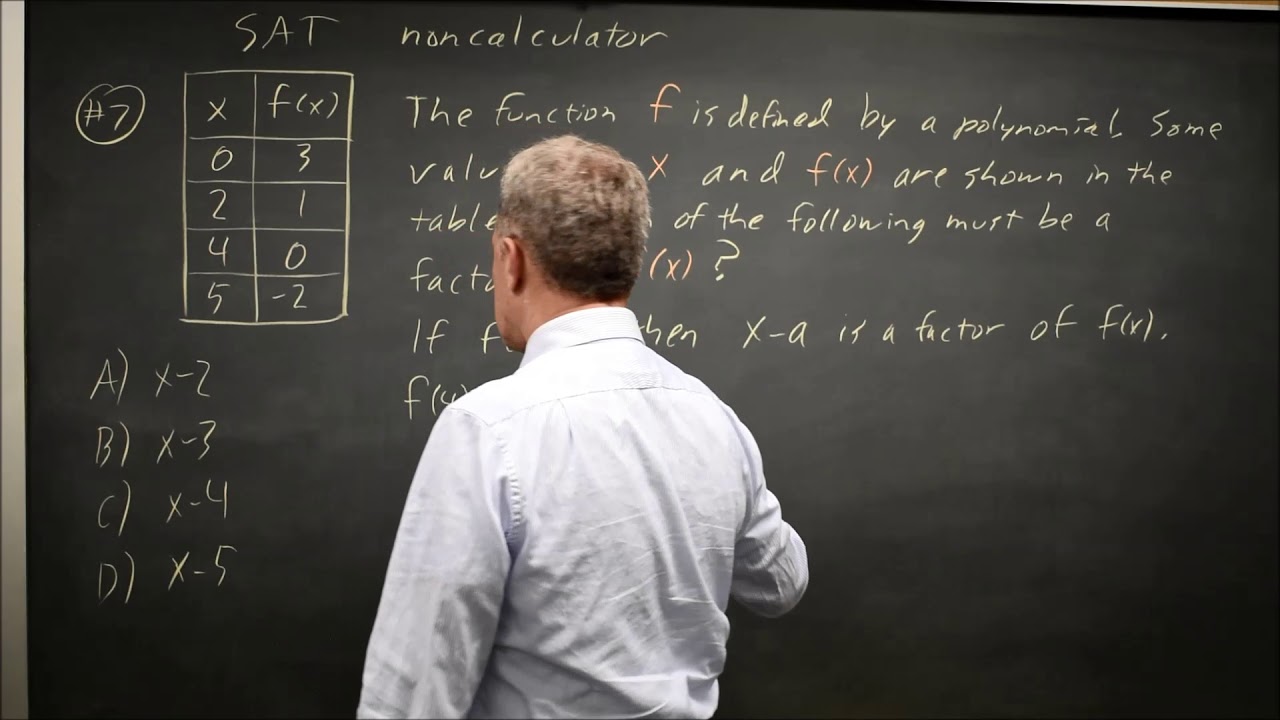 SAT noncalculator
#7
x f(x)
0 3
2 1
4 0
5 -2
The function f is defined by a polynomial. Some
x and f(x) are shown in the
table of the following must be a
(x) ?
If x-a is a factor of f(x).
A) x-2
B) x-3
C) x-4
D) x-5